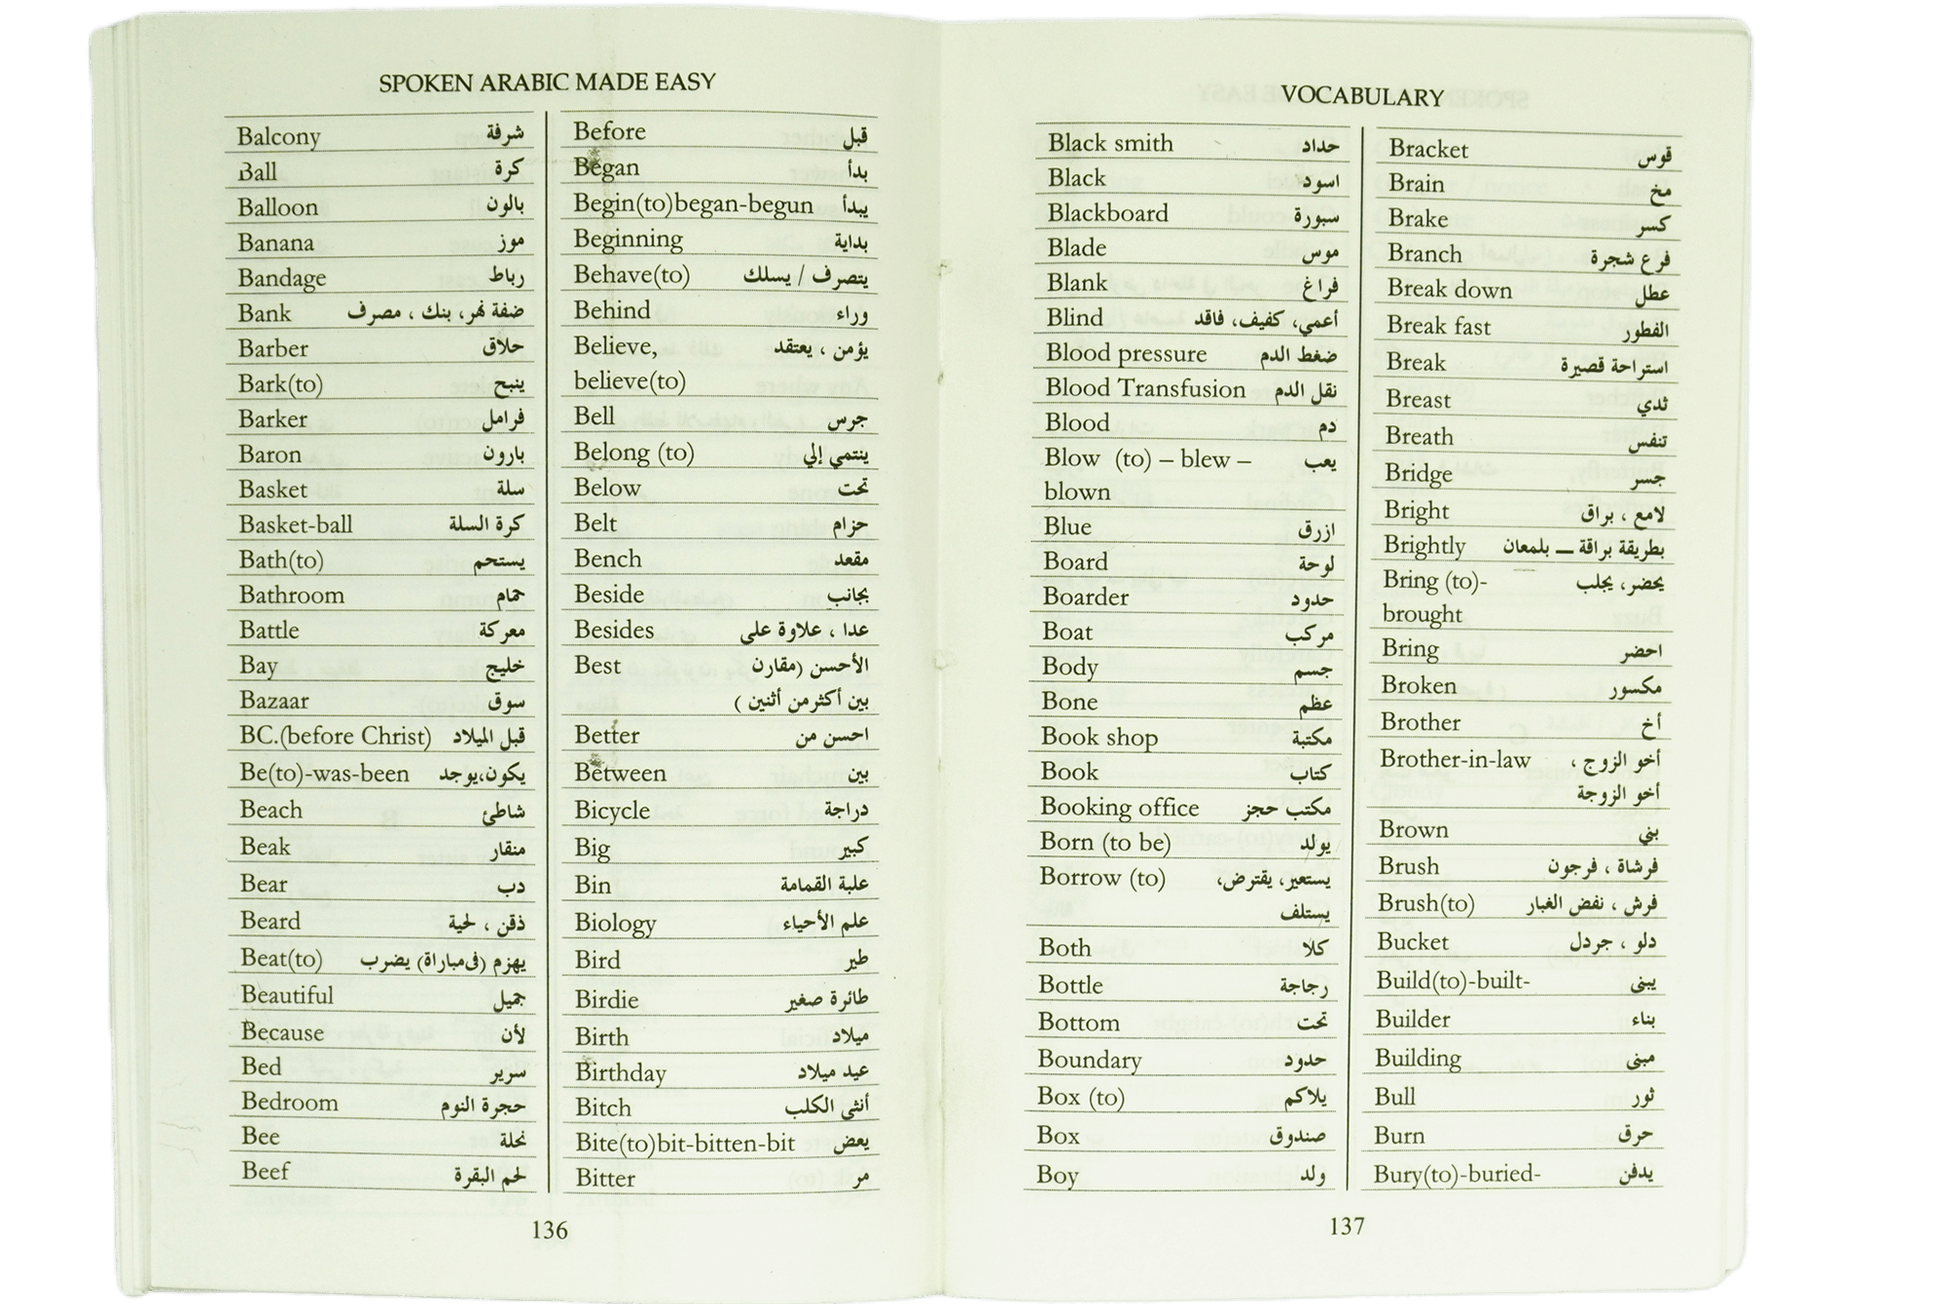 SPOKEN ARABIC MADE EASY
Balcony شرفة
Ball كرة
Balloon بالون
Banana موز
Bandage رباط
Bank ضفة نهر، بنك ، مصرف
Barber حلاق
Bark(to) ينبح
Barker فرامل
Baron بارون
Basket سلة
Basket-ball كرة السلة
Bath(to) يستحم
Bathroom حمام
Battle معركة
Bay خليج
Bazaar سوق
BC.(before Christ) قبل الميلاد
Be(to)-was-been يكون،يوجد
Beach شاطئ
Beak منقار
Bear دب
Beard ذقن ، لحية
Beat(to) يهزم (فى مباراة) يضرب
Beautiful جميل
Because لأن
Bed سرير
Bedroom حجرة النوم
Bee نحلة
Beef لحم البقرة
Before قبل
Began بدأ
Begin(to)began-begun يبدأ
Beginning بداية
Behave(to) يتصرف / يسلك
Behind وراء
Believe, يؤمن ، يعتقد
believe(to)
Bell جرس
Belong (to) ينتمي إلي
Below تحت
Belt حزام
Bench مقعد
Beside بجانب
Besides عدا ، علاوة على
Best الأحسن (مقارن
بين أكثرمن أثنين )
Better احسن من
Between بين
Bicycle دراجة
Big كبير
Bin علبة القمامة
Biology علم الأحياء
Bird طير
Birdie طائرة صغير
Birth ميلاد
Birthday عيد ميلاد
Bitch أنثى الكلب
Bite(to)bit-bitten-bit يعض
Bitter مر
136
VOCABULARY
Black smith حداد
Black اسود
Blackboard سبورة
Blade موس
Blank فراغ
Blind أعمي، كفيف، فاقد
Blood pressure ضغط الدم
Blood Transfusion نقل الدم
Blood دم
Blow (to) – blew – يعب
blown
Blue ازرق
Board لوحة
Boarder حدود
Boat مركب
Body جسم
Bone عظم
Book shop مكتبة
Book كتاب
Booking office مكتب حجز
Born (to be) يولد
Borrow (to) يستعير، يقترض،
يستلف
Both كلا
Bottle رجاجة
Bottom تحت
Boundary حدود
Box (to) يلاكم
Box صندوق
Boy ولد
Bracket قوس
Brain مخ
Brake كسر
Branch فرع شجرة
Break down عطل
Break fast الفطور
Break استراحة قصيرة
Breast ثدي
Breath تنفس
Bridge جسر
Bright لامع ، براق
Brightly بطريقة براقة ــ بلمعان
Bring (to)- يحضر، يجلب
brought
Bring احضر
Broken مكسور
Brother أخ
Brother-in-law أخو الزوج ،
أخو الزوجة
Brown بني
Brush فرشاة ، فرجون
Brush(to) فرش ، نفض الغبار
Bucket دلو ، جردل
Build(to)-built- يبنى
Builder بناء
Building مبنى
Bull ثور
Burn حرق
Bury(to)-buried- يدفن
137